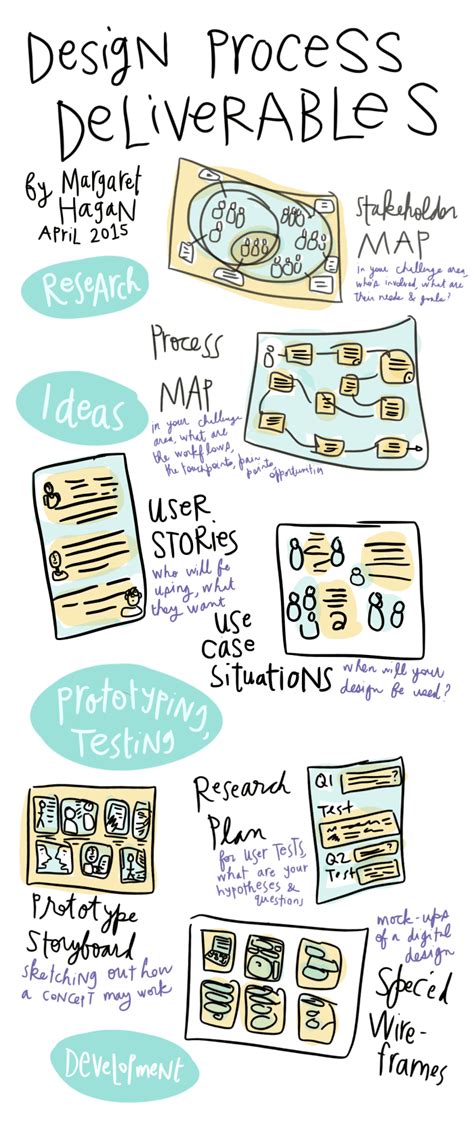 Design Process
Deliverables
by Margaret
Hagan
April 2015
Research
Stakeholder
Map
in your challenge area,
who's involved, what are
their needs & goals?
Ideas
Process
Map
in your challenge
area, what are
the workflows,
the touchpoints, pain
points, opportunities
User
Stories
who will be
using, what
they want
Use
Case
Situations
when will your
design be used?
Prototyping,
Testing
Research
Plan
for user tests,
what are your
hypotheses &
questions
Q1
?
Test
Q2
?
Test
Prototype
Storyboard
sketching out how
a concept may work
mock-ups
of a digital
design
Spec'd
Wire-
frames
Development